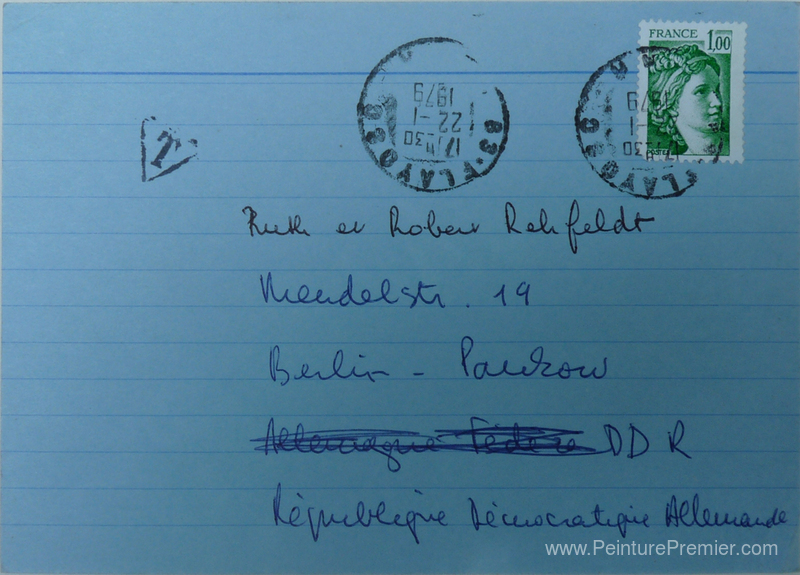 FRANCE 1,00
83 • FLAYOSC
17 H 30
22 - 1
1979
83 • FLAYOSC
17 H 30
- 1
1979
T
Ruth et Robert Rehfeldt
Mendelstr. 19
Berlin - Pankow
Allemagne Fédéra DDR
République Démocratique Allemande
www.PeinturePremier.com